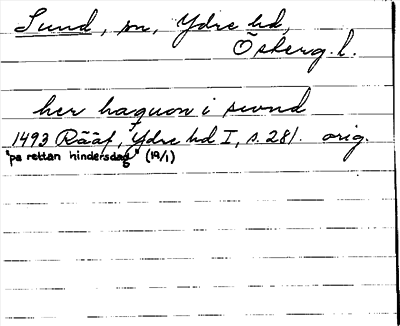 Sund, sn, Ydre hd,
Östberg. l.
her haquon i swnd
1493 Rääf, Ydre hd I, s. 281. orig.
"pa rettan hindersdag" (19/1)